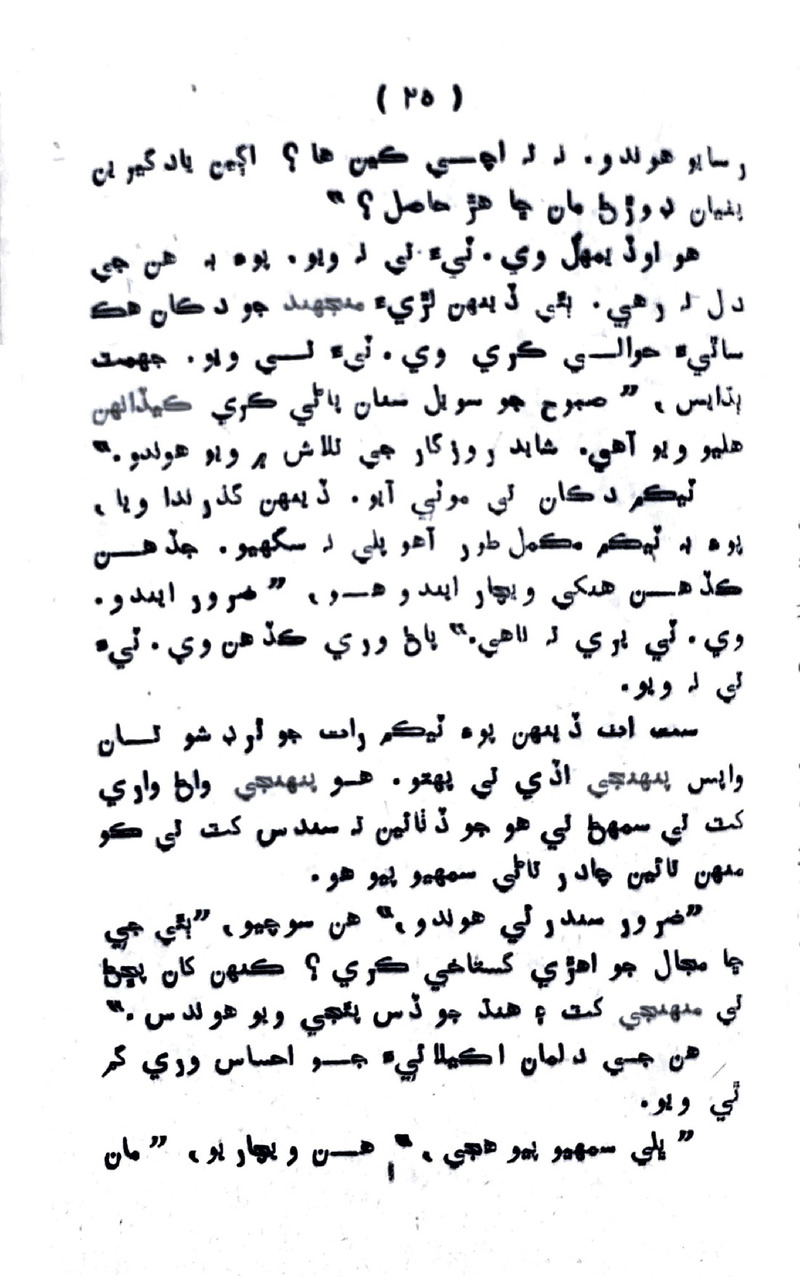 ( ۲۵ )
رسايو هوندو. نہ تہ اچــي ڪين ها؟ اڳين يادگيرين
پٺيان ڊوڙڻ مان ڇا هڙ حاصل؟“
هو اوڏيمهل وي. ٽيءَ تي نہ ويو. پوءِ بہ هن جي
دل نہ رهي. ٻئي ڏينهن ٽڙيءَ منجهند جو دڪان هڪ
ساٿيءَ حوالــي ڪري وي. ٽيءَ تــي ويو. جهمٽ
ٻڌايس، ”صبوح جو سويل سنان پاڻي ڪري ڪيڏانهن
هليو ويو آهي. شايد روزگار جي تلاش ۾ ويو هوندو.“
ٽيڪم دڪان تي موٽي آيو. ڏينهن گذرندا ويا،
پوءِ بہ ٽيڪم مڪمل طور آهو ڀلي نہ سگهيو. جڏهــن
ڪڏهــن هنکي ويچار ايندو هــو، ”ضرور ايندو.
وي. ٽي پري تہ ناهي.“ پاڻ وري ڪڏهن وي. ٽيءَ
تي نہ ويو.
ست اٺ ڏينهن پوءِ ٽيڪم رات جو ٿرڊ شو تــان
واپس پنهنجي اڏي تي پهتو. هــو پنهنجي واڻ واري
کٽ تي سمهڻ تي هو جو ڏٺائين تہ سندس کٽ تي ڪو
منهن تائين چادر تاڻي سمهيو پيو هو.
”ضرور سندر ئي هوندو،“ هن سوچيو، ”ٻئي جي
ڇا مجال جو اهڙي گستاخي ڪري؟ ڪنهن کان پڇڻ
تي منهنجي کٽ ۽ هنڌ جو ڏس پئجي ويو هوندس.“
هن جــي دلمان اڪيلائيءَ جــو احساس وري گم
ٿي ويو.
”ڀلي سمهيو پيو هجي،“ هــن ويچاريو، ”مان